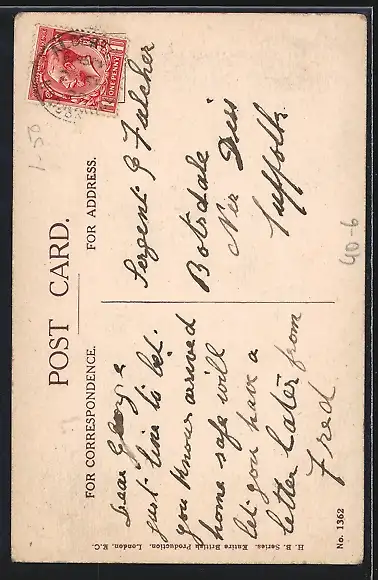 POST CARD.
FOR CORRESPONDENCE.
FOR ADDRESS.
Dear George
just line to let
you know arrived
home safe will
let you have a
letter later from
Fred
Sergent G Fulcher
Botesdale
Nr Diss
Suffolk
ONE PENNY
1-50
40-6
H. B. Series. Entire British Production. London, E.C.
No. 1362